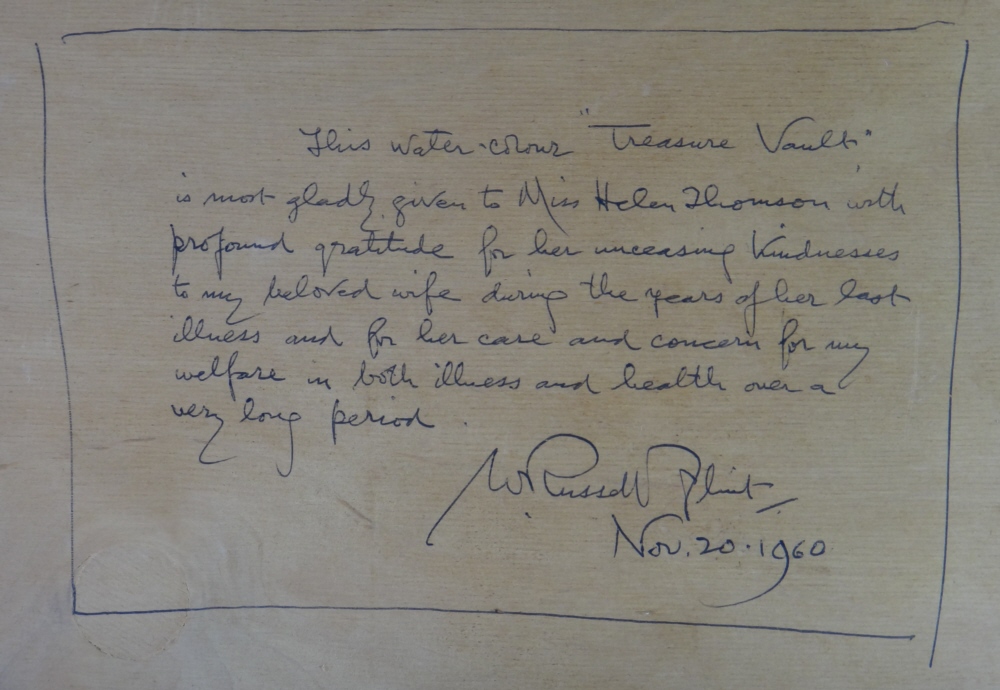 This water-colour "Treasure Vault"
is most gladly given to Miss Helen Thomson with
profound gratitude for her unceasing kindnesses
to my beloved wife during the years of her last
illness and for her care and concern for my
welfare in both illness and health over a
very long period.
W Russell Flint
Nov. 20. 1960